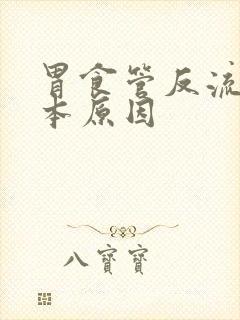 胃食管反流
本原因
八寶寶